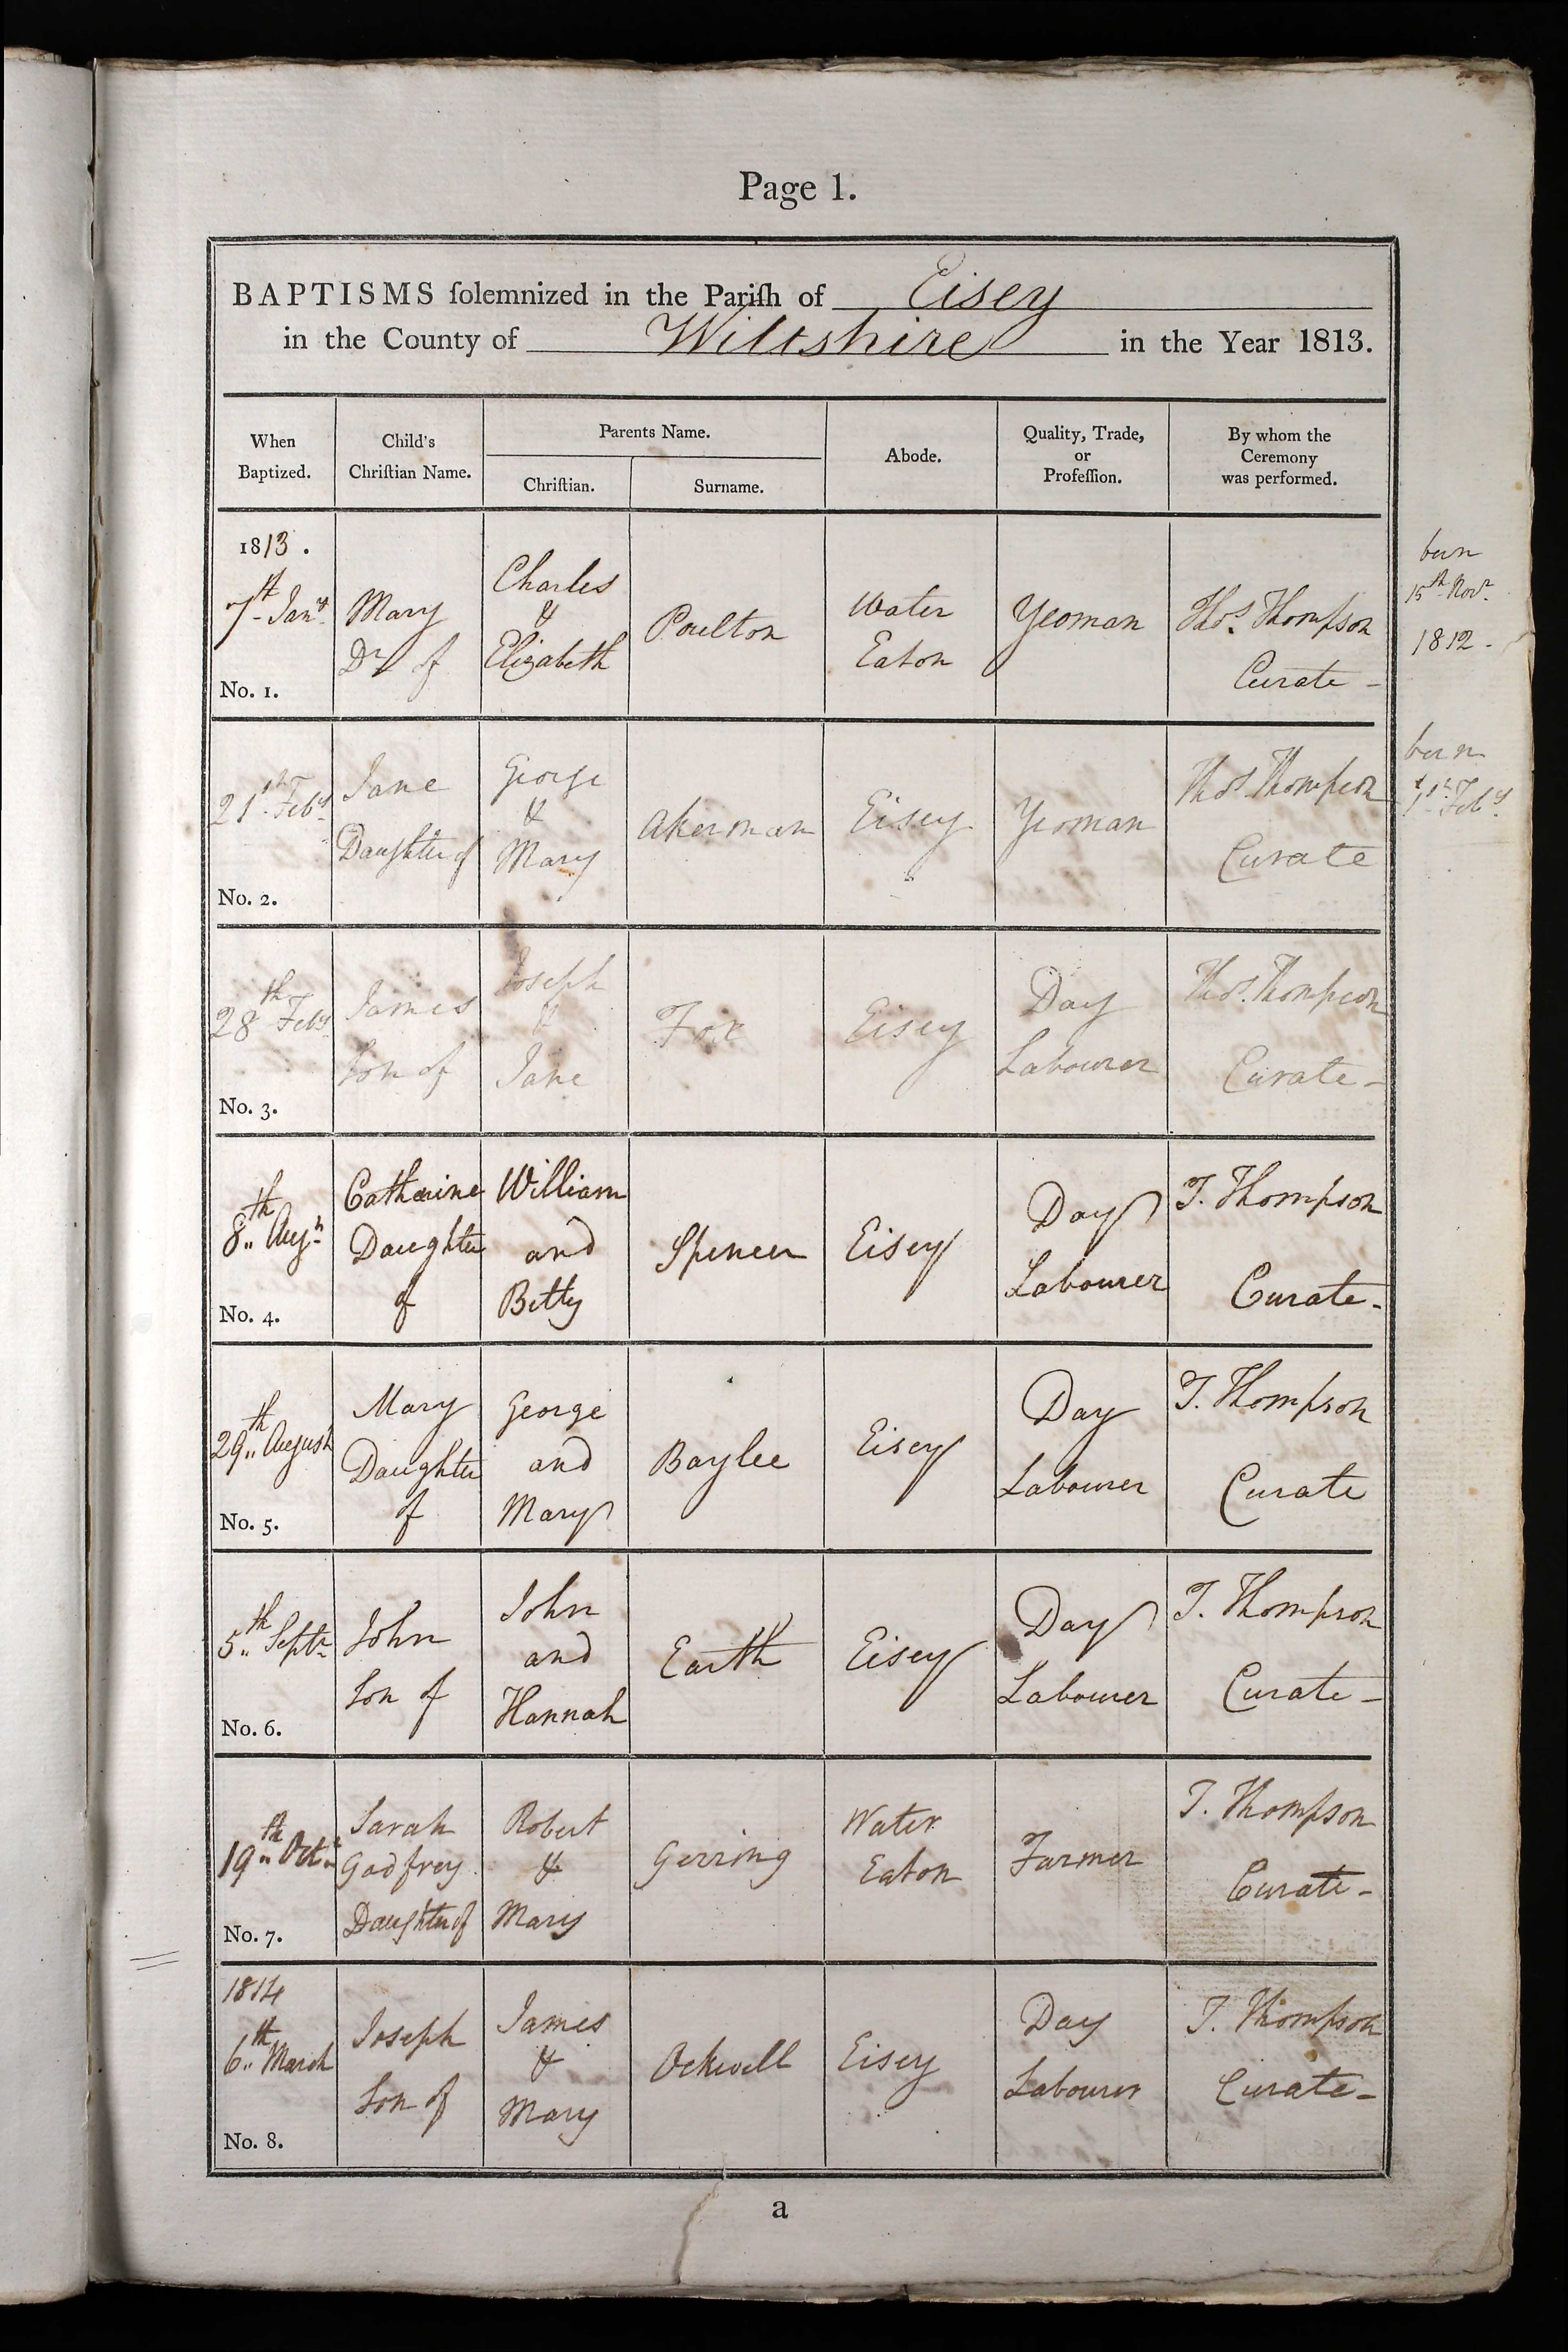 Page 1.
BAPTISMS ſolemnized in the Pariſh of Eisey
in the County of Wiltshire in the Year 1813.
When
Baptized.
Child's
Chriſtian Name.
Parents Name.
Chriſtian.
Surname.
Abode.
Quality, Trade,
or
Profeſſion.
By whom the
Ceremony
was performed.
1813.
7th Jany
No. 1.
Mary
Dr of
Charles
&
Elizabeth
Poulton
Water
Eaton
Yeoman
Thos. Thompson
Curate -
born
15th Novr.
1812 -
21st Feby
No. 2.
Jane
Daughter of
George
&
Mary
Akerman
Eisey
Yeoman
Thos. Thompson
Curate
born
1st Feby.
28th Feby
No. 3.
James
Son of
Joseph
&
Jane
Fox
Eisey
Day
Labourer
Thos. Thompson
Curate -
8th Augt
No. 4.
Catharine
Daughter
of
William
and
Betty
Spencer
Eisey
Day
Labourer
T. Thompson
Curate -
29th August
No. 5.
Mary
Daughter
of
George
and
Mary
Baylee
Eisey
Day
Labourer
T. Thompson
Curate
5th Septr
No. 6.
John
Son of
John
and
Hannah
Earth
Eisey
Day
Labourer
T. Thompson
Curate -
19th Octr
No. 7.
Sarah
Godfrey
Daughter of
Robert
&
Mary
Gerring
Water
Eaton
Farmer
T. Thompson
Curate -
1814
6th March
No. 8.
Joseph
Son of
James
&
Mary
Ockwell
Eisey
Day
Labourer
T. Thompson
Curate -
a